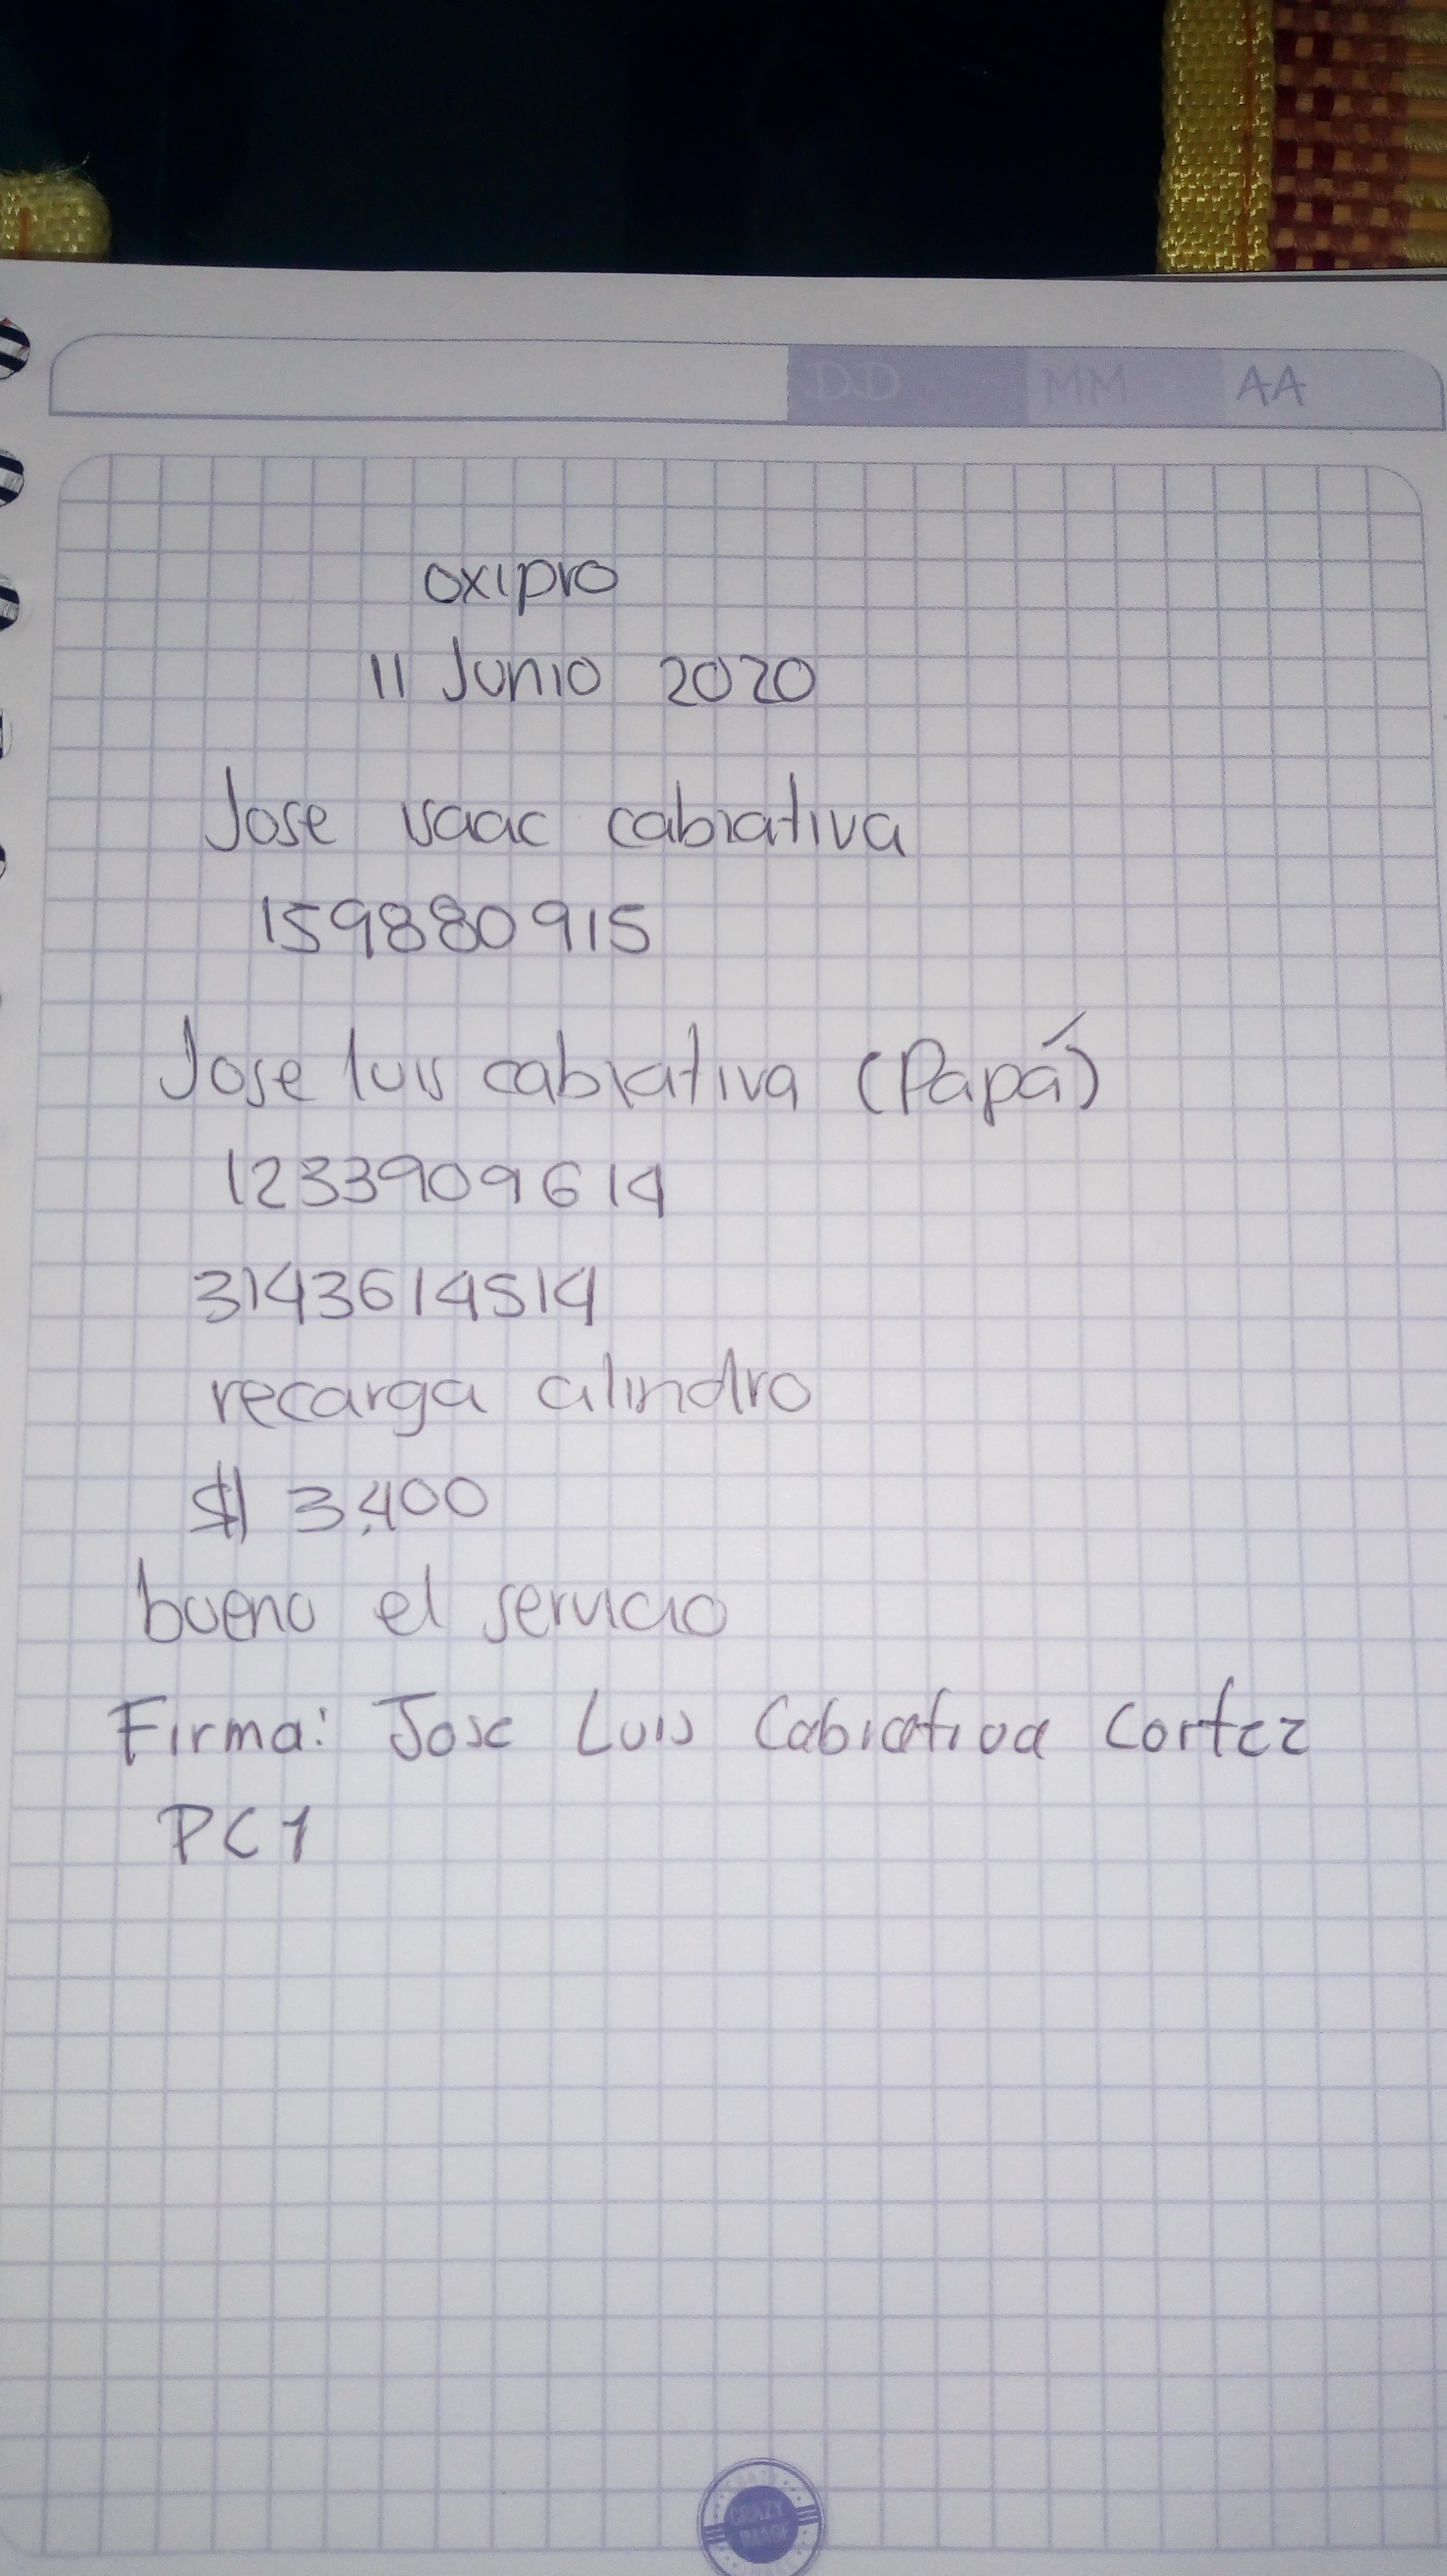 DD MM AA
oxipro
11 Junio 2020
Jose isaac cabiativa
159880915
Jose luis cabiativa (Papá)
1233909614
3143614514
recarga cilindro
$ 3,400
bueno el servicio
Firma: Jose Luis Cabiativa Cortez
PC1
CRAZY